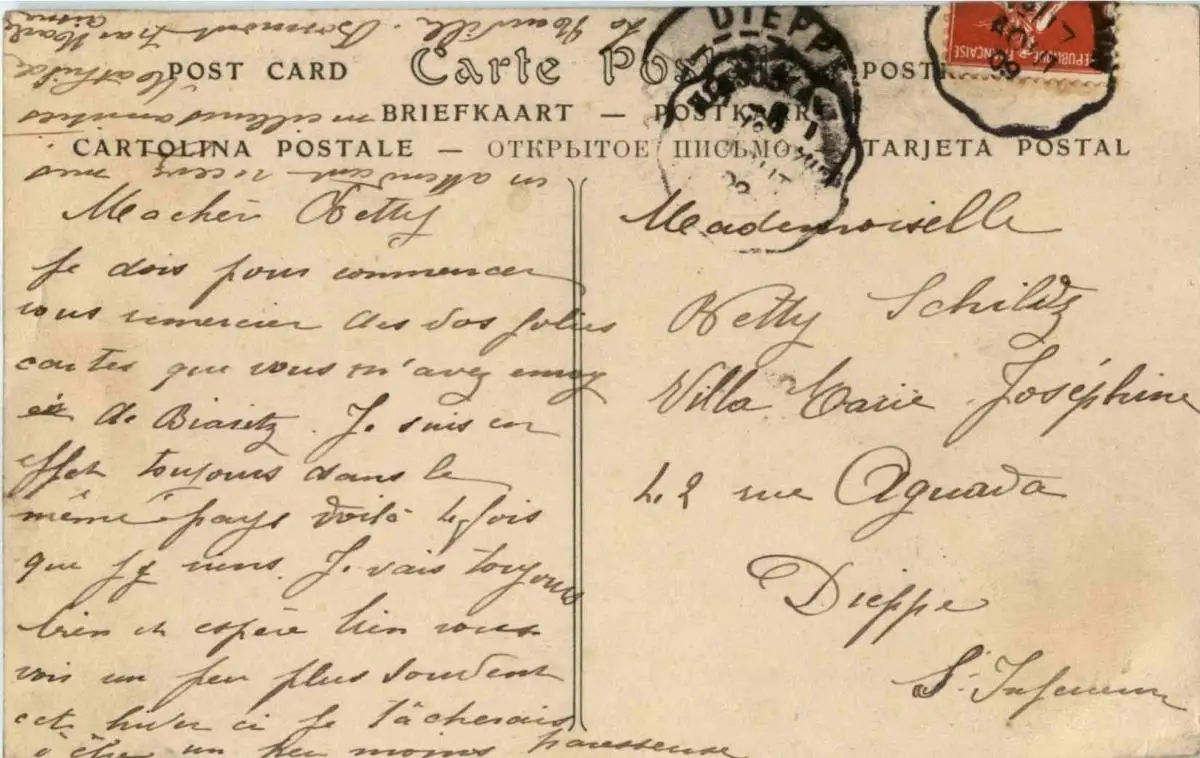 Carte Postale
POST CARD
BRIEFKAART — POSTKAART
CARTOLINA POSTALE — ОТКРЫТОЕ ПИСЬМО — TARJETA POSTAL
DIEPPE
REPUBLIQUE FRANÇAISE
09
Ma chèri Ketty
Je dois pour commencer
vous remercier des vos jolies
cartes que vous m'avez envoy
ée de Biaritz. Je suis en
effet toujours dans le
même pays voilà 4 fois
que j'y viens. Je vais toujours
bien et espère bien vous
voir un peu plus souvent
cet hiver ci je tâcherais
d'être un peu moins paresseuse
en attendant recevez mes
meilleures amitiés
Mathilde
Mademoiselle
Ketty Schildz
Villa Marie Joséphine
42 rue Aguado
Dieppe
S. Inferieure